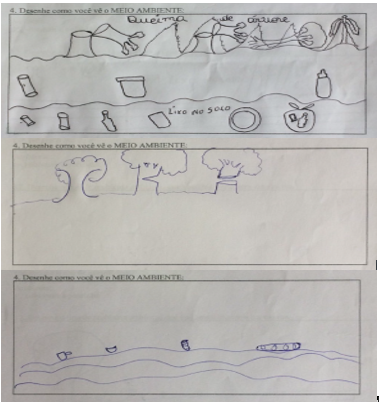 4. Desenhe como você vê o MEIO AMBIENTE:
Queima de cárvore
Lixo no solo
4. Desenhe como você vê o MEIO AMBIENTE:
4. Desenhe como você vê o MEIO AMBIENTE: